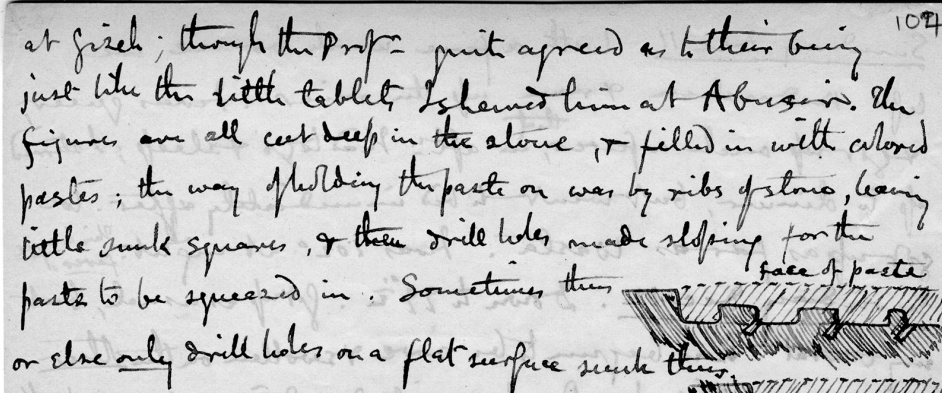 104
at Gizeh; though the Profr quite agreed as to their being
just like the little tablets I shewed him at Abusir. The
figures are all cut deep in the stone, & filled in with colored
pastes; the way of holding the paste on was by ribs of stone, leaving
little sunk squares, & then drill holes made sloping for the
paste to be squeezed in. Sometimes thus
face of paste
or else only drill holes on a flat surface sunk thus.